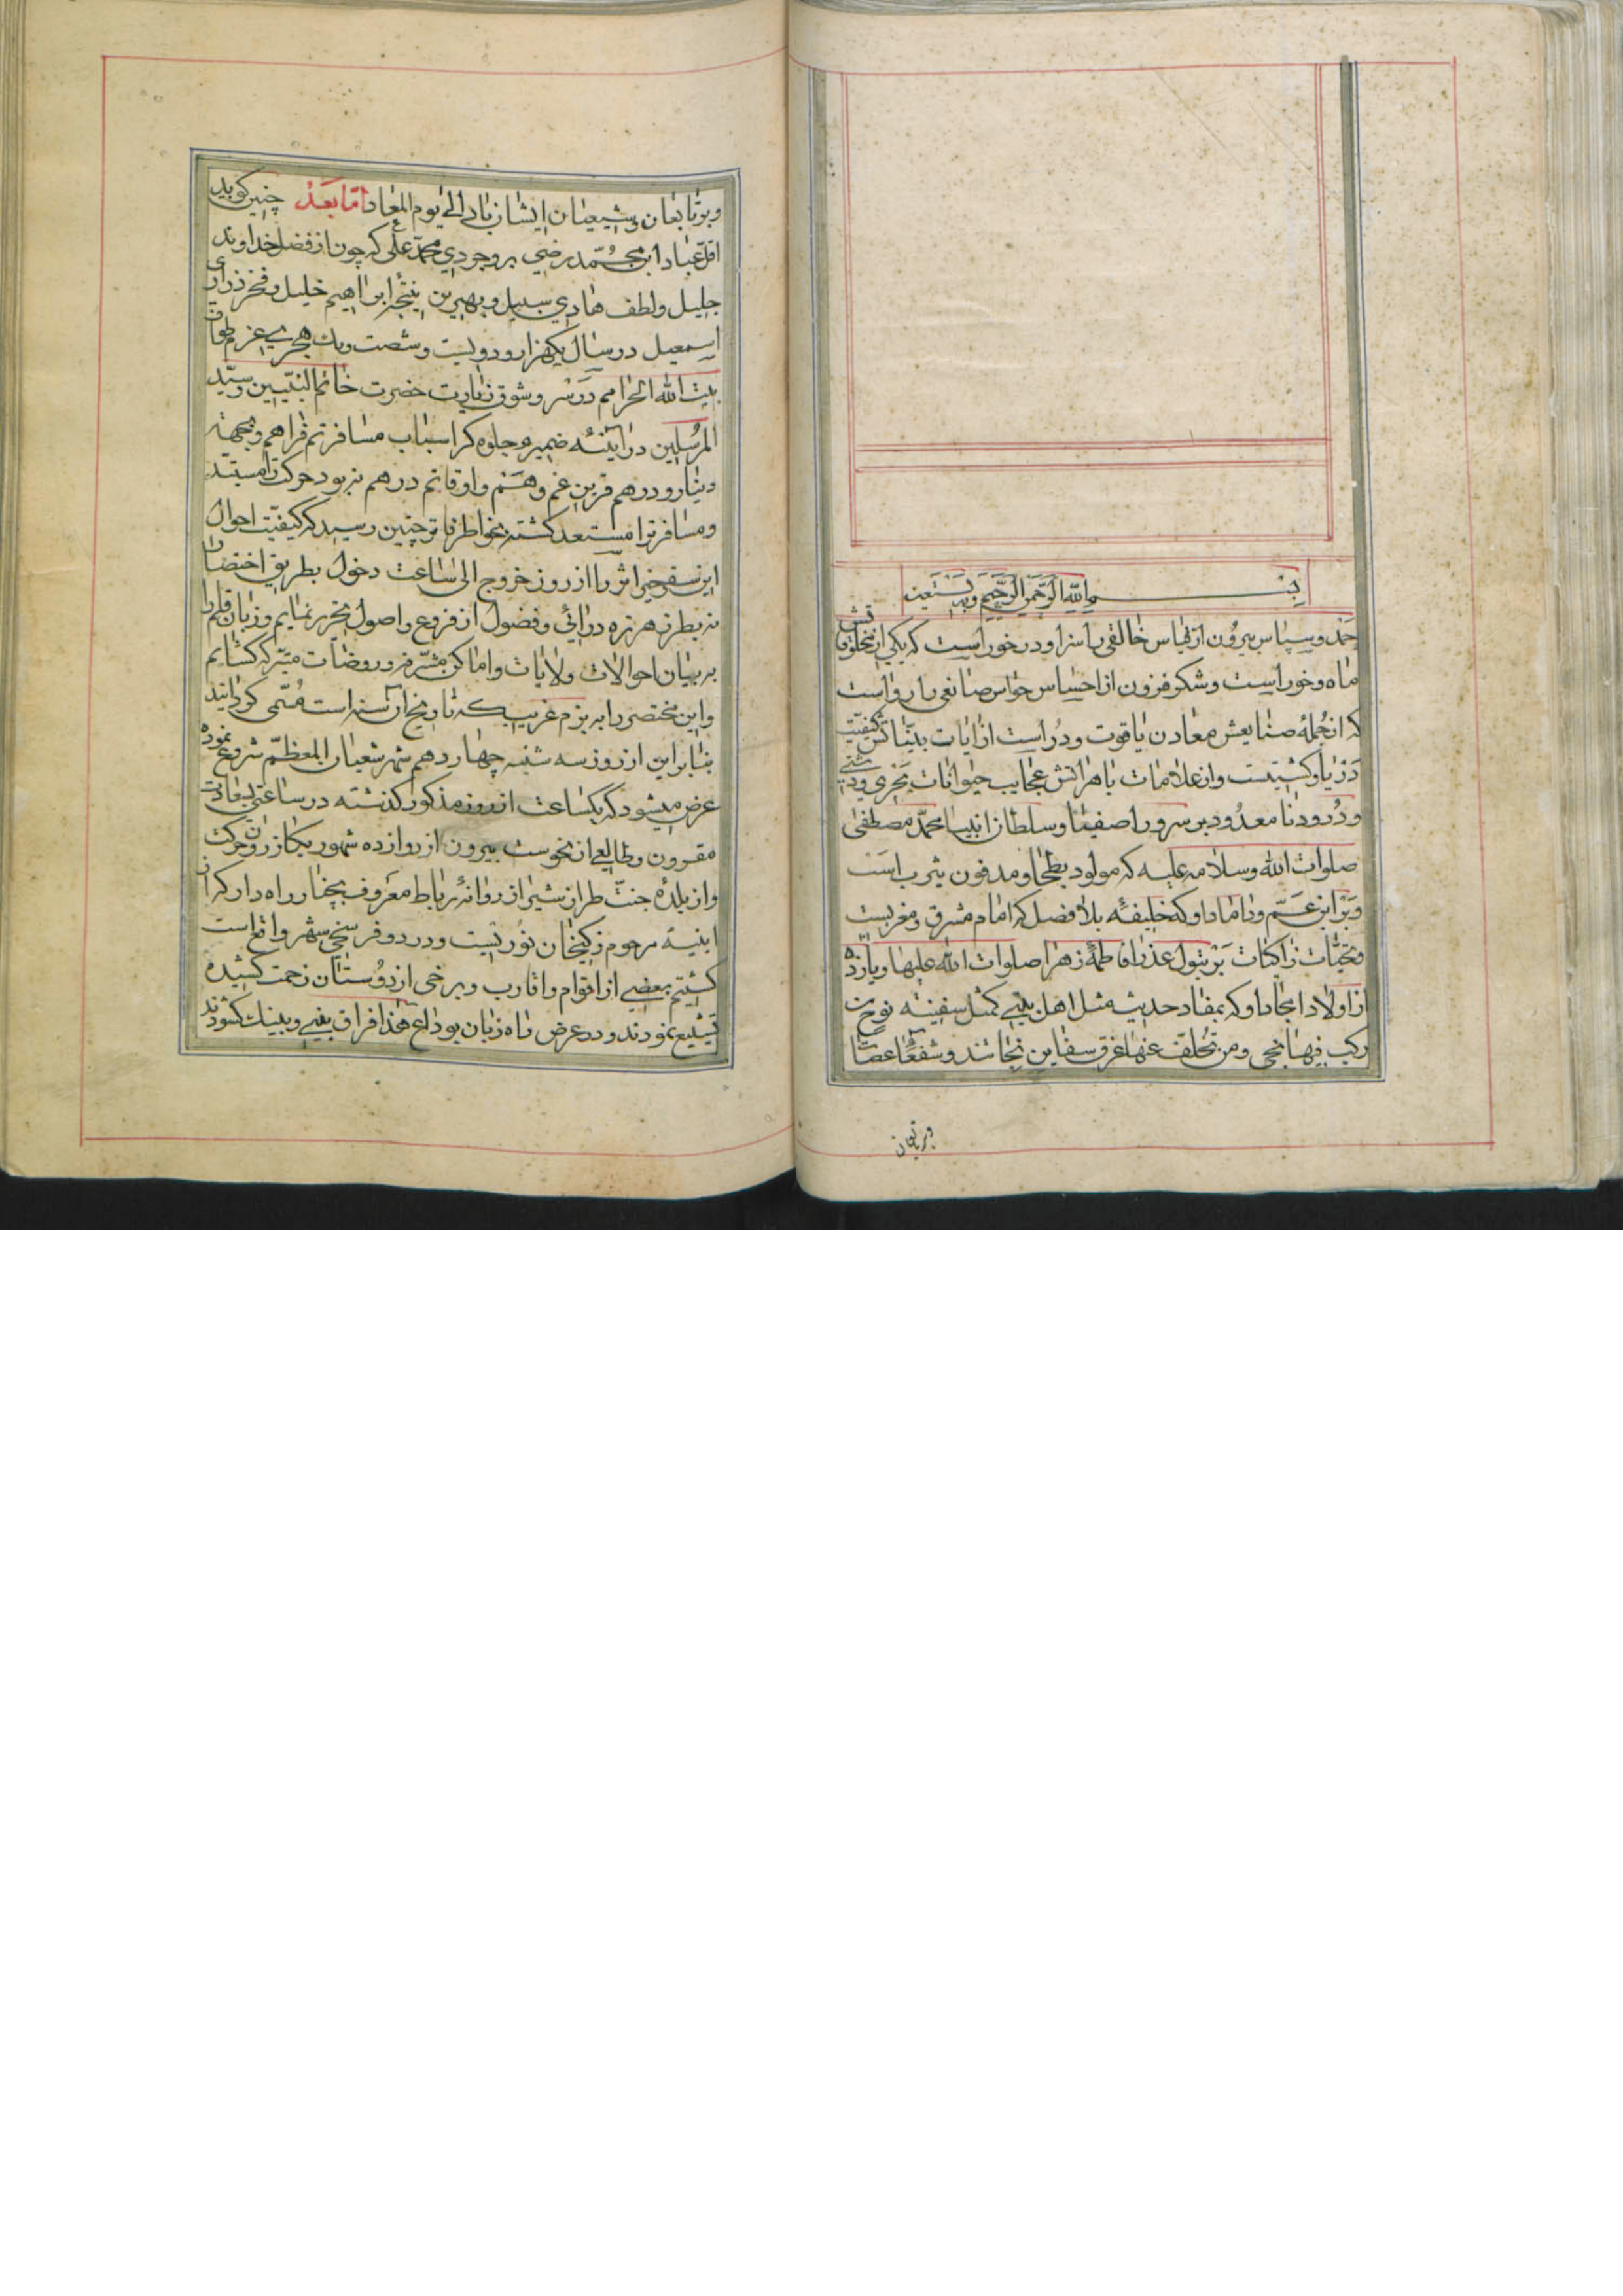 بسم الله الرحمن الرحیم وبه نستعین
حمد و سپاس بیرون از قیاس خالقی را سزا و در خور است که یکی از مخلوقاتش
ماه و خور است و شکر فزون از احساس حواس صانعی را رواست
که از جمله صنایعش معادن یاقوت و در است از ایات بیناتش کیفیت
دریا و کشتیست و از علامات باهراتش عجایب حیوانات بحری و دشتی
و درود نا معدود بر سرور اصفیا و سلطان انبیا محمد مصطفی
صلوات الله وسلامه علیه که مولود بطحا و مدفون یثرب است
و بر ابن عم و داماد او که خلیفه بلا فصل که امام مشرق و مغربست
و تحیات زاکیات بر بتول عذرا فاطمه زهرا صلوات الله علیها و یازده
از اولاد امجاد او که بمفاد حدیث مثل اهل بیتی کمثل سفینه نوح من
رکب فیها نجی و من تخلف عنها غرق سفاین نجاتند و شفعا عصات
و بر تابعان
و بر تابعان و شیعیان ایشان باد الی یوم المعاد اما بعد چنین گوید
اقل عباد ابن محمد رضی بروجردی محمد علی که چون از فضل خداوند
جلیل و لطف هادی سبیل و بهترین نتیجه ابراهیم خلیل و فخر ذراری
اسمعیل در سال یکهزار و دویست و شصت و یک هجری عزم طواف
بیت الله الحرامم در سر و شوق زیارت حضرت خاتم النبیین و سید
المرسلین در آیینه ضمیرم جلوه کر اسباب مسافرتم فراهم و بجهة
دینار و درهم قرین غم و هم و اوقاتم درهم نبود حرکت را مستبد
و مسافرت را مستعد کشته بخواطر فاتر چنین رسید که کیفیت احوال
این سفر خیر اثر را از روز خروج الی ساعت دخول بطریق اختصار
نه بطرز هرزه درائی و فضول از فروع و اصول تحریر نمایم و زبان قلم را
به بیان احوالات ولایات و اماکن مشرفه و روضات متبرکه کشایم
و این مختصر را به بزم غریب که تاریخ آن سنه است مسمی کردانید
بنابراین از روز سه شنبه چهاردهم شهر شعبان المعظم شروع نموده
عرض میشود که یکساعت از روز مذکور کذشته در ساعتی بسعادت
مقرون و طالعی از نحوست بیرون از دوازده شهور یکاز حرکت
و از بلده جنت طراز شیراز روانه رباط معروف بچنار راه دار که از
ابنیه مرحوم زکیخان نوریست و در دو فرسخی شهر واقع است
کشتیم بعضی از اقوام و اقارب و برخی از دوستان زحمت کشیده
تشییع نمودند و در عرض راه زبان بوداع هذا فراق بینی و بینک کشودند